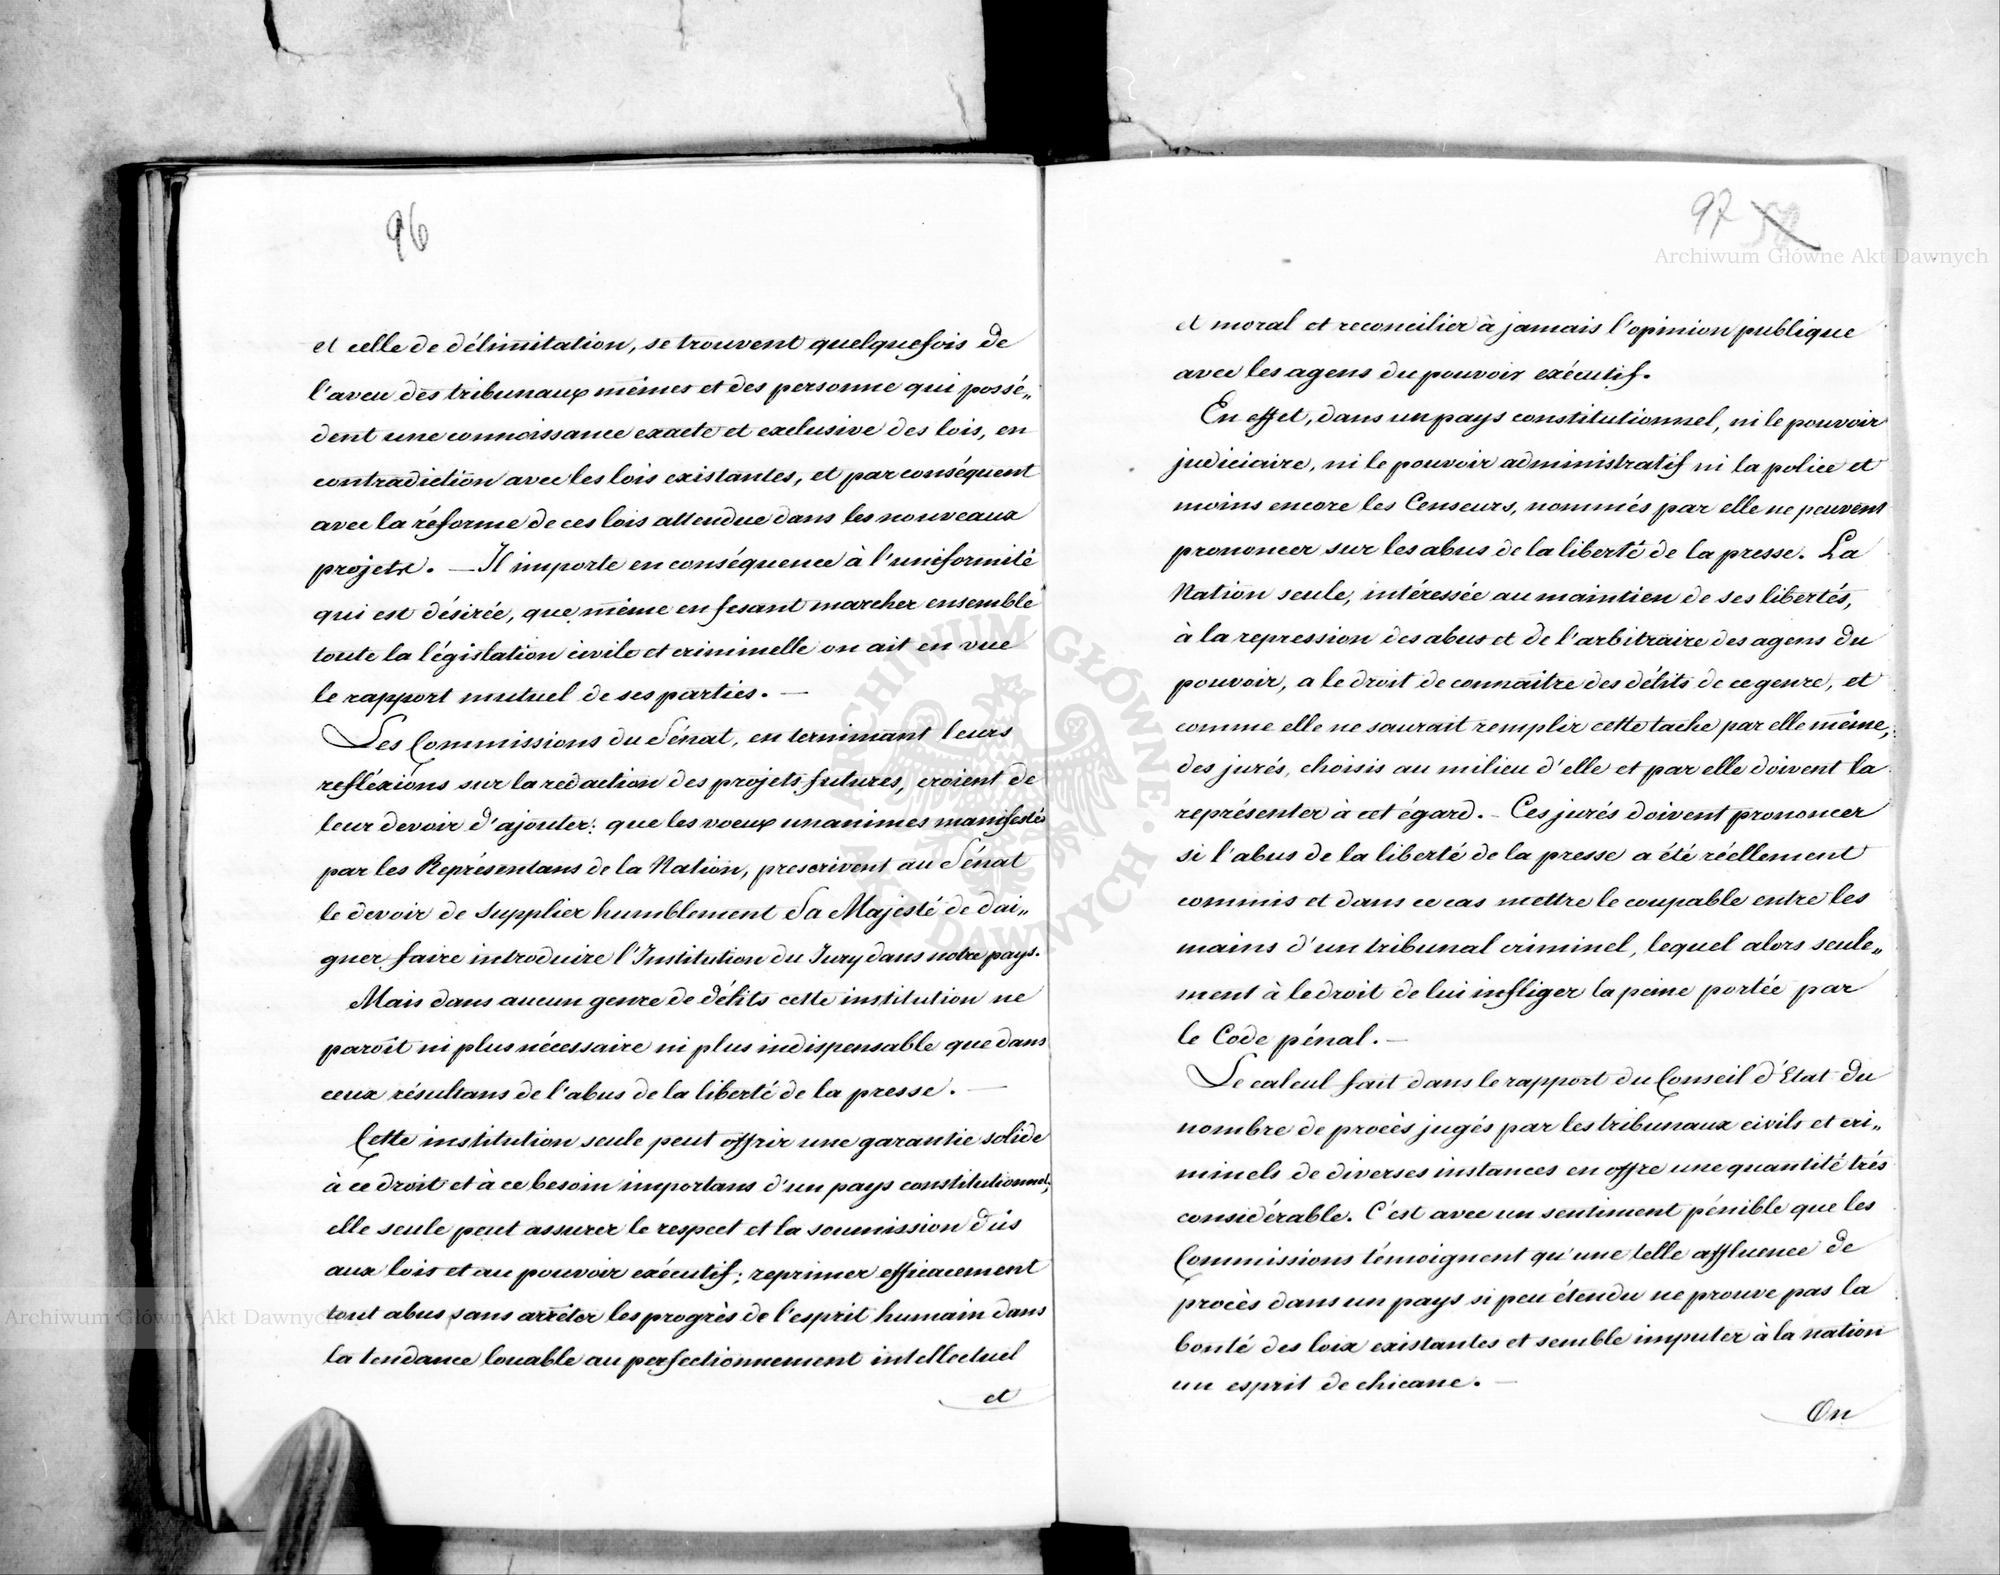 96
et celle de délimitation, se trouvent quelquefois de
l'aveu des tribunaux mêmes et des personne qui possé„
dent une connoissance exacte et exclusive des lois, en
contradiction avec les lois existantes, et par conséquent
avec la réforme de ces lois attendue dans les nouveaux
projets. — Il importe en conséquence à l'uniformité
qui est désirée, que même en fesant marcher ensemble
toute la législation civile et criminelle on ait en vue
le rapport mutuel de ses parties. —
Les Commissions du Sénat, en terminant leurs
refléxions sur la redaction des projets futures, croient de
leur devoir d'ajouter: que les voeux unanimes manifestés
par les Représentans de la Nation, prescrivent au Sénat
le devoir de supplier humblement Sa Majesté de dai„
gner faire introduire l'Institution du Jury dans notre pays.
Mais dans aucun genre de délits cette institution ne
paroît ni plus nécessaire ni plus indispensable que dans
ceux résultans de l'abus de la liberté de la presse. —
Cette institution seule peut offrir une garantie solide
à ce droit et à ce besoin importans d'un pays constitutionnel;
elle seule peut assurer le respect et la soumission dûs
aux lois et au pouvoir exécutif; reprimer efficacement
tout abus sans arrêter les progrès de l'esprit humain dans
la tendance louable au perfectionnement intellectuel
et
97 58
et moral et reconcilier à jamais l'opinion publique
avec les agens du pouvoir exécutif.
En effet, dans un pays constitutionnel, ni le pouvoir
judiciaire, ni le pouvoir administratif ni la police et
moins encore les Censeurs, nommés par elle ne peuvent
prononcer sur les abus de la liberté de la presse. La
Nation seule, intéressée au maintien de ses libertés,
à la repression des abus et de l'arbitraire des agens du
pouvoir, a le droit de connaître des délits de ce genre, et
comme elle ne saurait remplir cette tache par elle même,
des jurés, choisis au milieu d'elle et par elle doivent la
représenter à cet égard. - Ces jurés doivent prononcer
si l'abus de la liberté de la presse a été réellement
commis et dans ce cas mettre le coupable entre les
mains d'un tribunal criminel, lequel alors seule„
ment à le droit de lui infliger la peine portée par
le Code pénal. —
Le calcul fait dans le rapport du Conseil d'Etat du
nombre de procès jugés par les tribunaux civils et cri„
minels de diverses instances en offre une quantité trés
considérable. C'est avec un sentiment pénible que les
Commissions témoignent qu'une telle affluence de
procès dans un pays si peu étendu ne prouve pas la
bonté des loix existantes et semble imputer à la nation
un esprit de chicane. —
On
Archiwum Główne Akt Dawnych
Archiwum Główne Akt Dawnych
ARCHIWUM GŁÓWNE AKT DAWNYCH